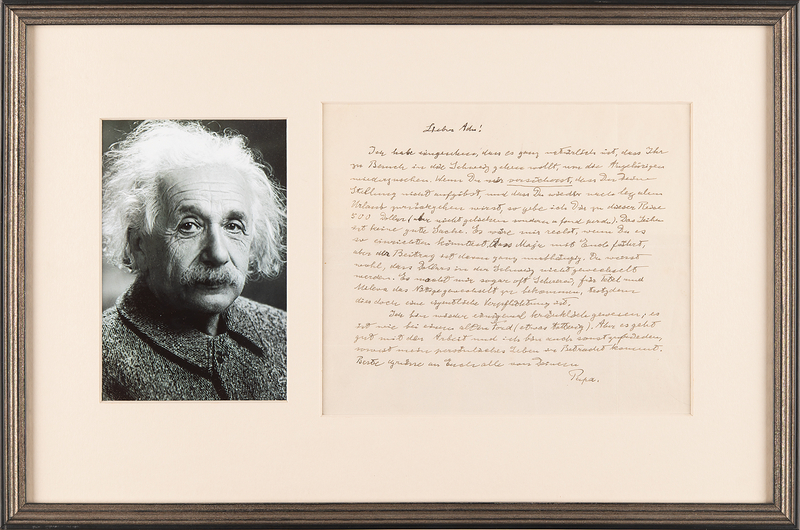 Lieber Adu!
Ich habe eingesehen, dass es ganz natürlich ist, dass Ihr
zu Besuch in die Schweiz gehen wollt, um die Angehörigen
wiederzusehen. Wenn Du mir versicherst, dass Du Deine
Stellung nicht aufgibst, und dass Du wieder nach
Urlaub zurückgehen wirst, so gebe ich Dir zu dieser Reise
500 Dollars (nicht geliehen sondern a fond perdu). Das Leihen
ist keine gute Sache. Es wäre mir recht, wenn Du es
so einrichten könntest, dass Maja mit Euch fährt,
aber der Beitrag ist davon ganz unabhängig. Du weisst
wohl, dass Dollars in der Schweiz nicht gewechselt
werden. Es macht mir sogar oft Schwierig, für Tetel und
Mileva das gewechselt zu bekommen, trotzdem
dies doch eine Verpflichtung ist.
Ich bin wieder gewesen, es
ist wie bei einem alten Ford (etwas). Aber es geht
gut mit der Arbeit und ich bin auch sonst zufrieden,
soweit mein persönliches Leben in Betracht kommt.
Beste Grüsse an Euch alle von Deinem
Papa.